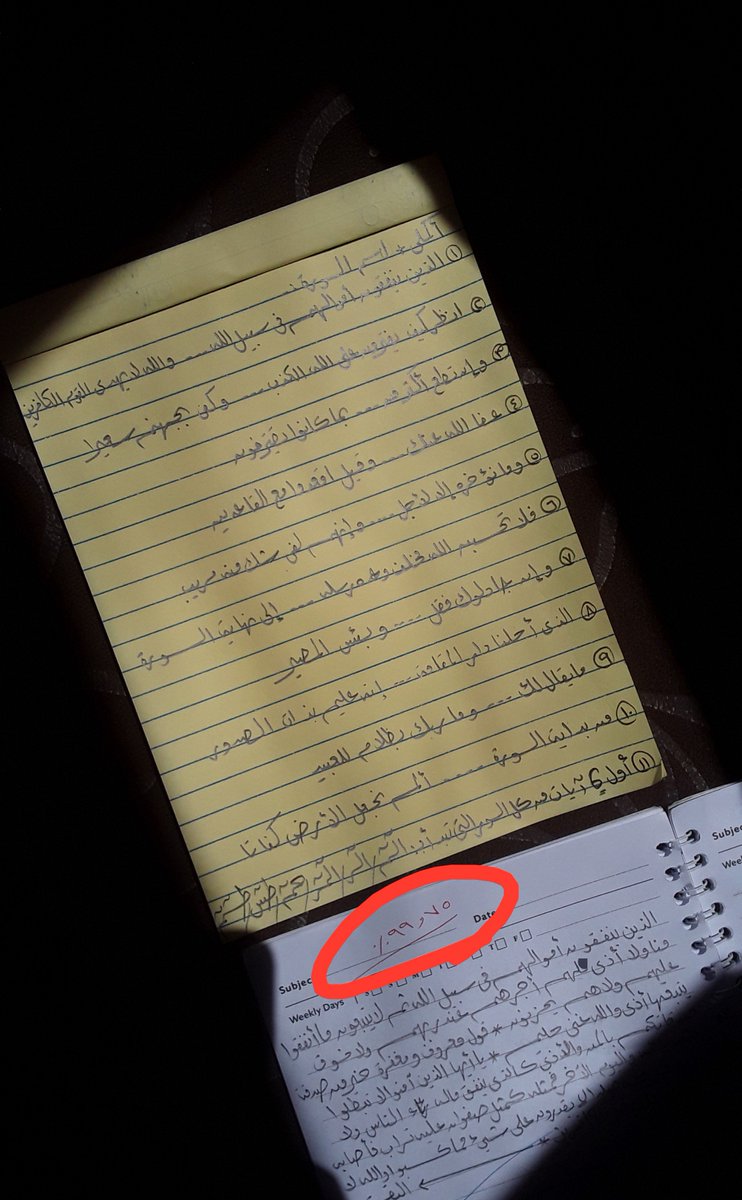 أكملي * اسم السورة:
① الذين ينفقون أموالهم في سبيل الله .... والله لا يهدي القوم الكافرين
② انظر كيف يفترون على الله الكذب .... وكفى بجهنم سعيرا
③ وإن تطع أكثر من .... بما كانوا يقترفون
④ عفا الله عنك .... وقيل اقعدوا مع القاعدين
⑤ وما نؤخره إلا لأجل .... وإنهم لفي شك منه مريب
⑥ فلا تحسبن الله مخلف وعده رسله .... إلى نهاية السورة
⑦ وإن جادلوك فقل .... وبئس المصير
⑧ الذي أحلنا دار المقامة .... إنه عليم بذات الصدور
⑨ ما يقال لك .... وما ربك بظلام للعبيد
⑩ من بداية السورة .... ألم نجعل الأرض كفاتا
⑪ أول 6 آيات من كل السور التي تبدأ بـ: الٓمٓ / الٓر / الٓمٓر / حمٓ / طسٓ / طسٓمٓ
٩٩,٧٥٪
Subjec
Date
Weekly Days
M
T
F
الذين ينفقون أموالهم في سبيل الله ثم لا يتبعون ما أنفقوا
منا ولا أذى لهم أجرهم عند ربهم ولا خوف
عليهم ولا هم يحزنون * قول معروف ومغفرة خير من صدقة
يتبعها أذى والله غني حليم * يا أيها الذين آمنوا لا تبطلوا
صدقاتكم بالمن والأذى كالذي ينفق ماله رئاء الناس ولا
واليوم الآخر فمثله كمثل صفوان عليه تراب فأصابه
لا يقدرون على شيء مما كسبوا والله لا
Subjec
Week